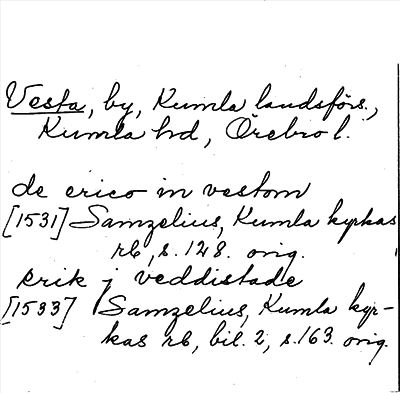 Vesta, by, Kumla landsförs.,
Kumla hd, Örebro l.
de erico in vestom
[1531] Samzelius, Kumla kyrkas
rb, s. 128. orig.
erik j veddistade
[1533] Samzelius, Kumla kyr-
kas rb, bil. 2, s. 163. orig.